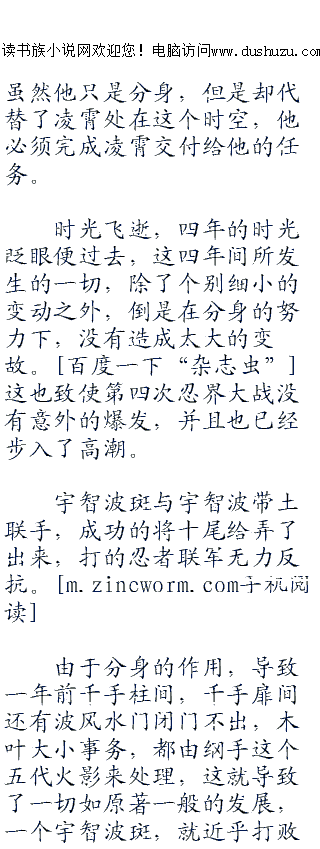 读书族小说网欢迎您！电脑访问www.dushuzu.com
虽然他只是分身，但是却代
替了凌霄处在这个时空，他
必须完成凌霄交付给他的任
务。
时光飞逝，四年的时光
眨眼便过去，这四年间所发
生的一切，除了个别细小的
变动之外，倒是在分身的努
力下，没有造成太大的变
故。[百度一下“杂志虫”]
这也致使第四次忍界大战没
有意外的爆发，并且也已经
步入了高潮。
宇智波斑与宇智波带土
联手，成功的将十尾给弄了
出来，打的忍者联军无力反
抗。[m.zincworm.com手机阅
读]
由于分身的作用，导致
一年前千手柱间，千手扉间
还有波风水门闭门不出，木
叶大小事务，都由纲手这个
五代火影来处理，这就导致
了一切如原著一般的发展，
一个宇智波斑，就近乎打败